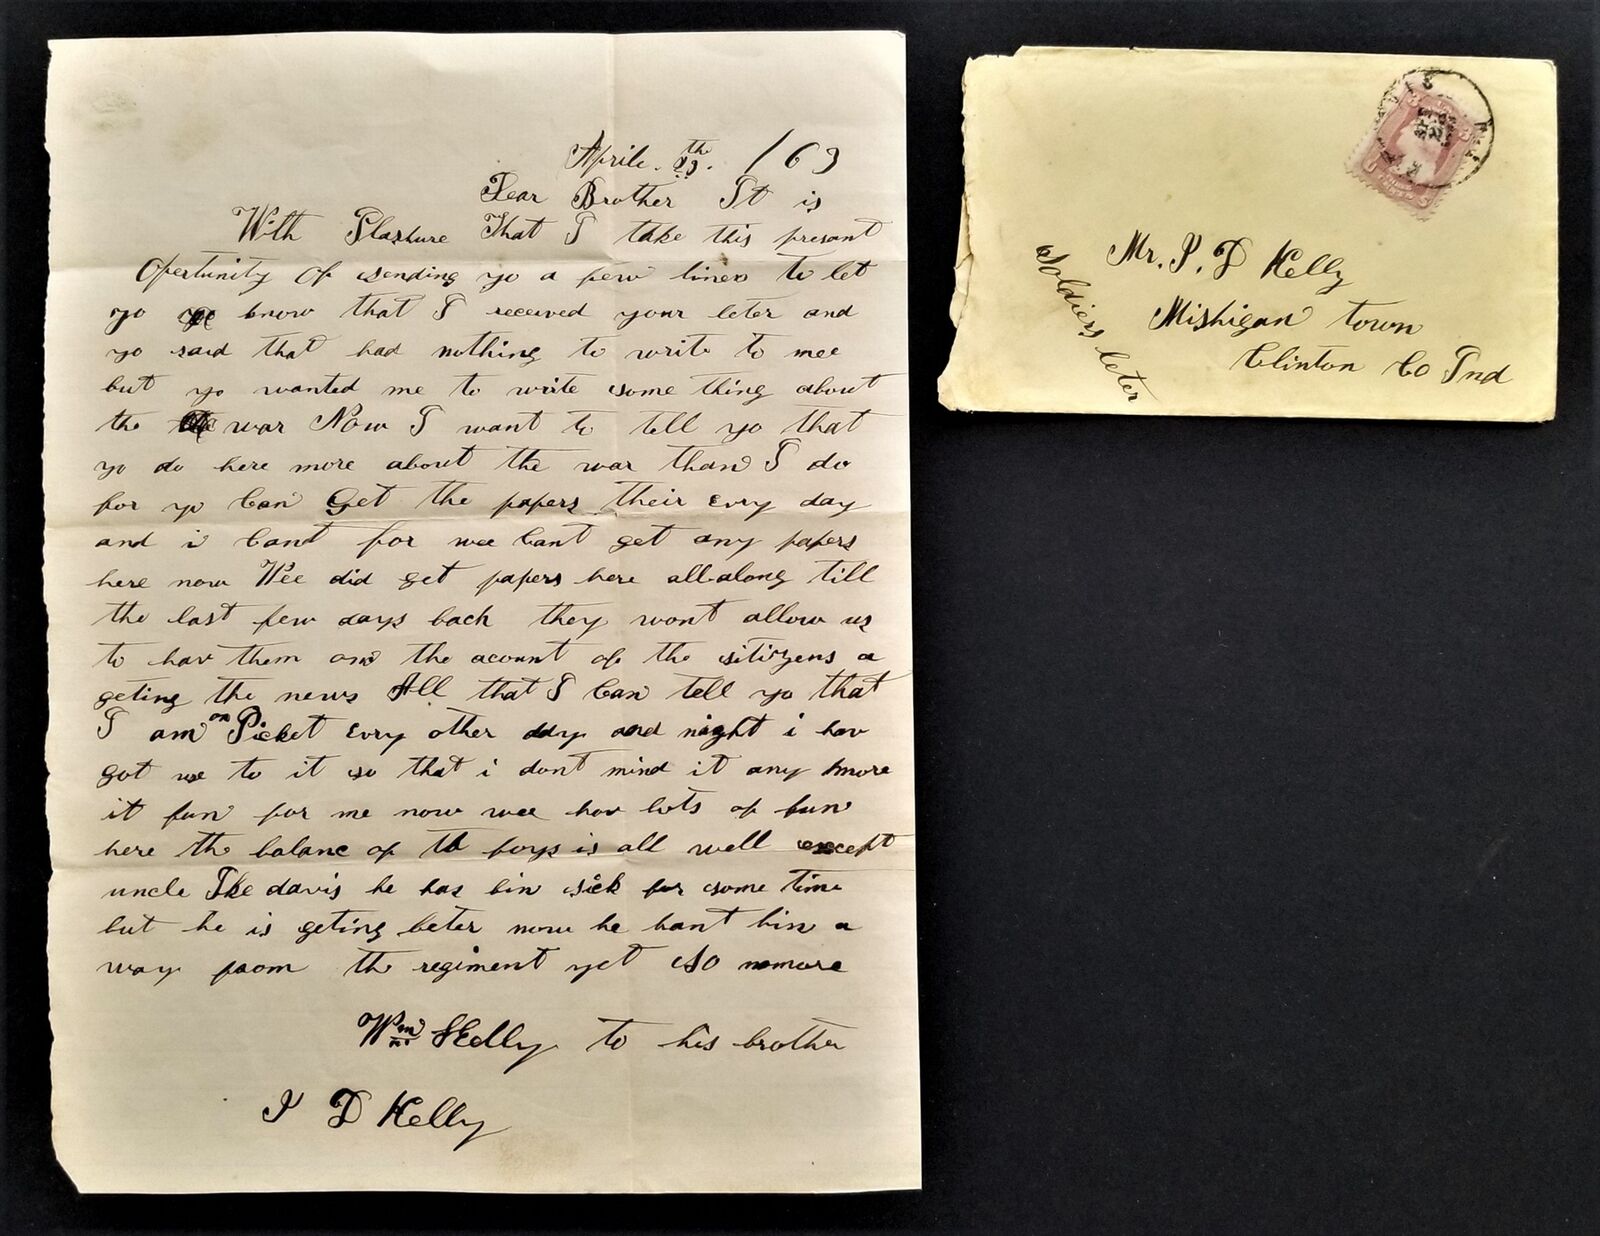 Aprile. th /63
Dear Brother It is
With Plashure That I take this present
Opertunity Of sending yo a few lines to let
yo know that I received your leter and
yo said that had nothing to write to mee
but yo wanted me to write some thing about
the war Now I want to tell yo that
yo do here more about the war than I do
for yo Can Get the papers their Evry day
and i Cant for wee Cant get any papers
here now Wee did get papers here all along till
the last few days back they wont allow us
to hav them on the acount of the sitizens a
geting the news All that I Can tell yo that
I am on Picket Evry other day and night i hav
got use to it so that i dont mind it any more
it fun for me now wee hav lots of fun
here the balanc of the boys is all well except
uncle Ike davis he has bin sick for some time
but he is geting beter now he hant bin a
way from the regiment yet So nomore
Wm Kelly to his brother
J D Kelly
Mr. J. D Kelly
Mishigan town
Clinton Co Ind
Soldiers leter